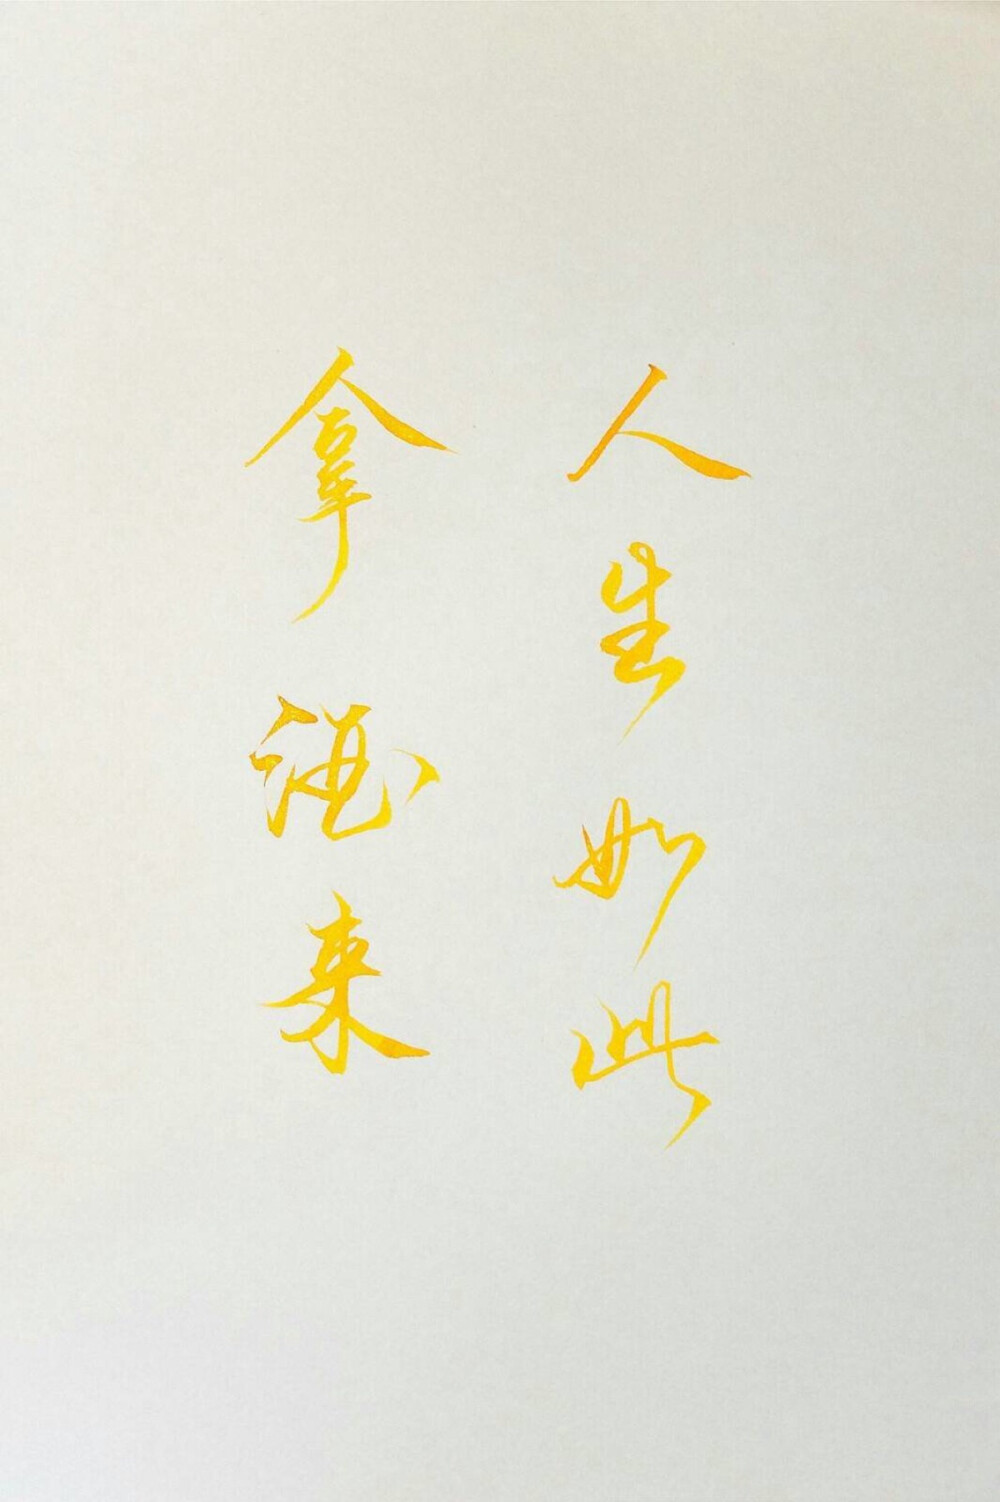 人生如此
拿酒来